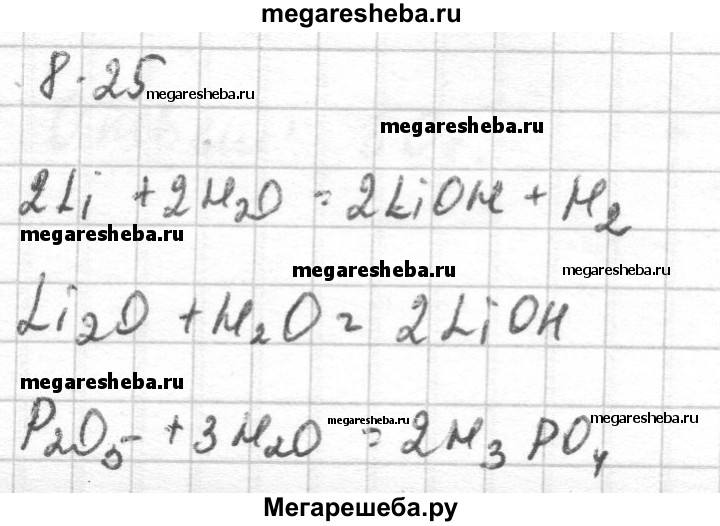 megaresheba.ru
8.25
megaresheba.ru
megaresheba.ru
2Li + 2H2O = 2LiOH + H2
megaresheba.ru
megaresheba.ru
megaresheba.ru
Li2O + H2O = 2LiOH
megaresheba.ru
megaresheba.ru
megaresheba.ru
P2O5 + 3H2O = 2H3PO4
Мегарешеба.ру